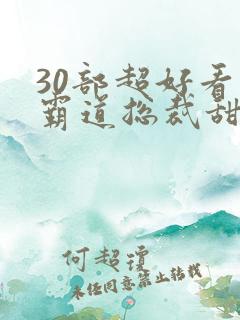 30部超好看
霸道总裁甜
何超琼
未经同意禁止转载